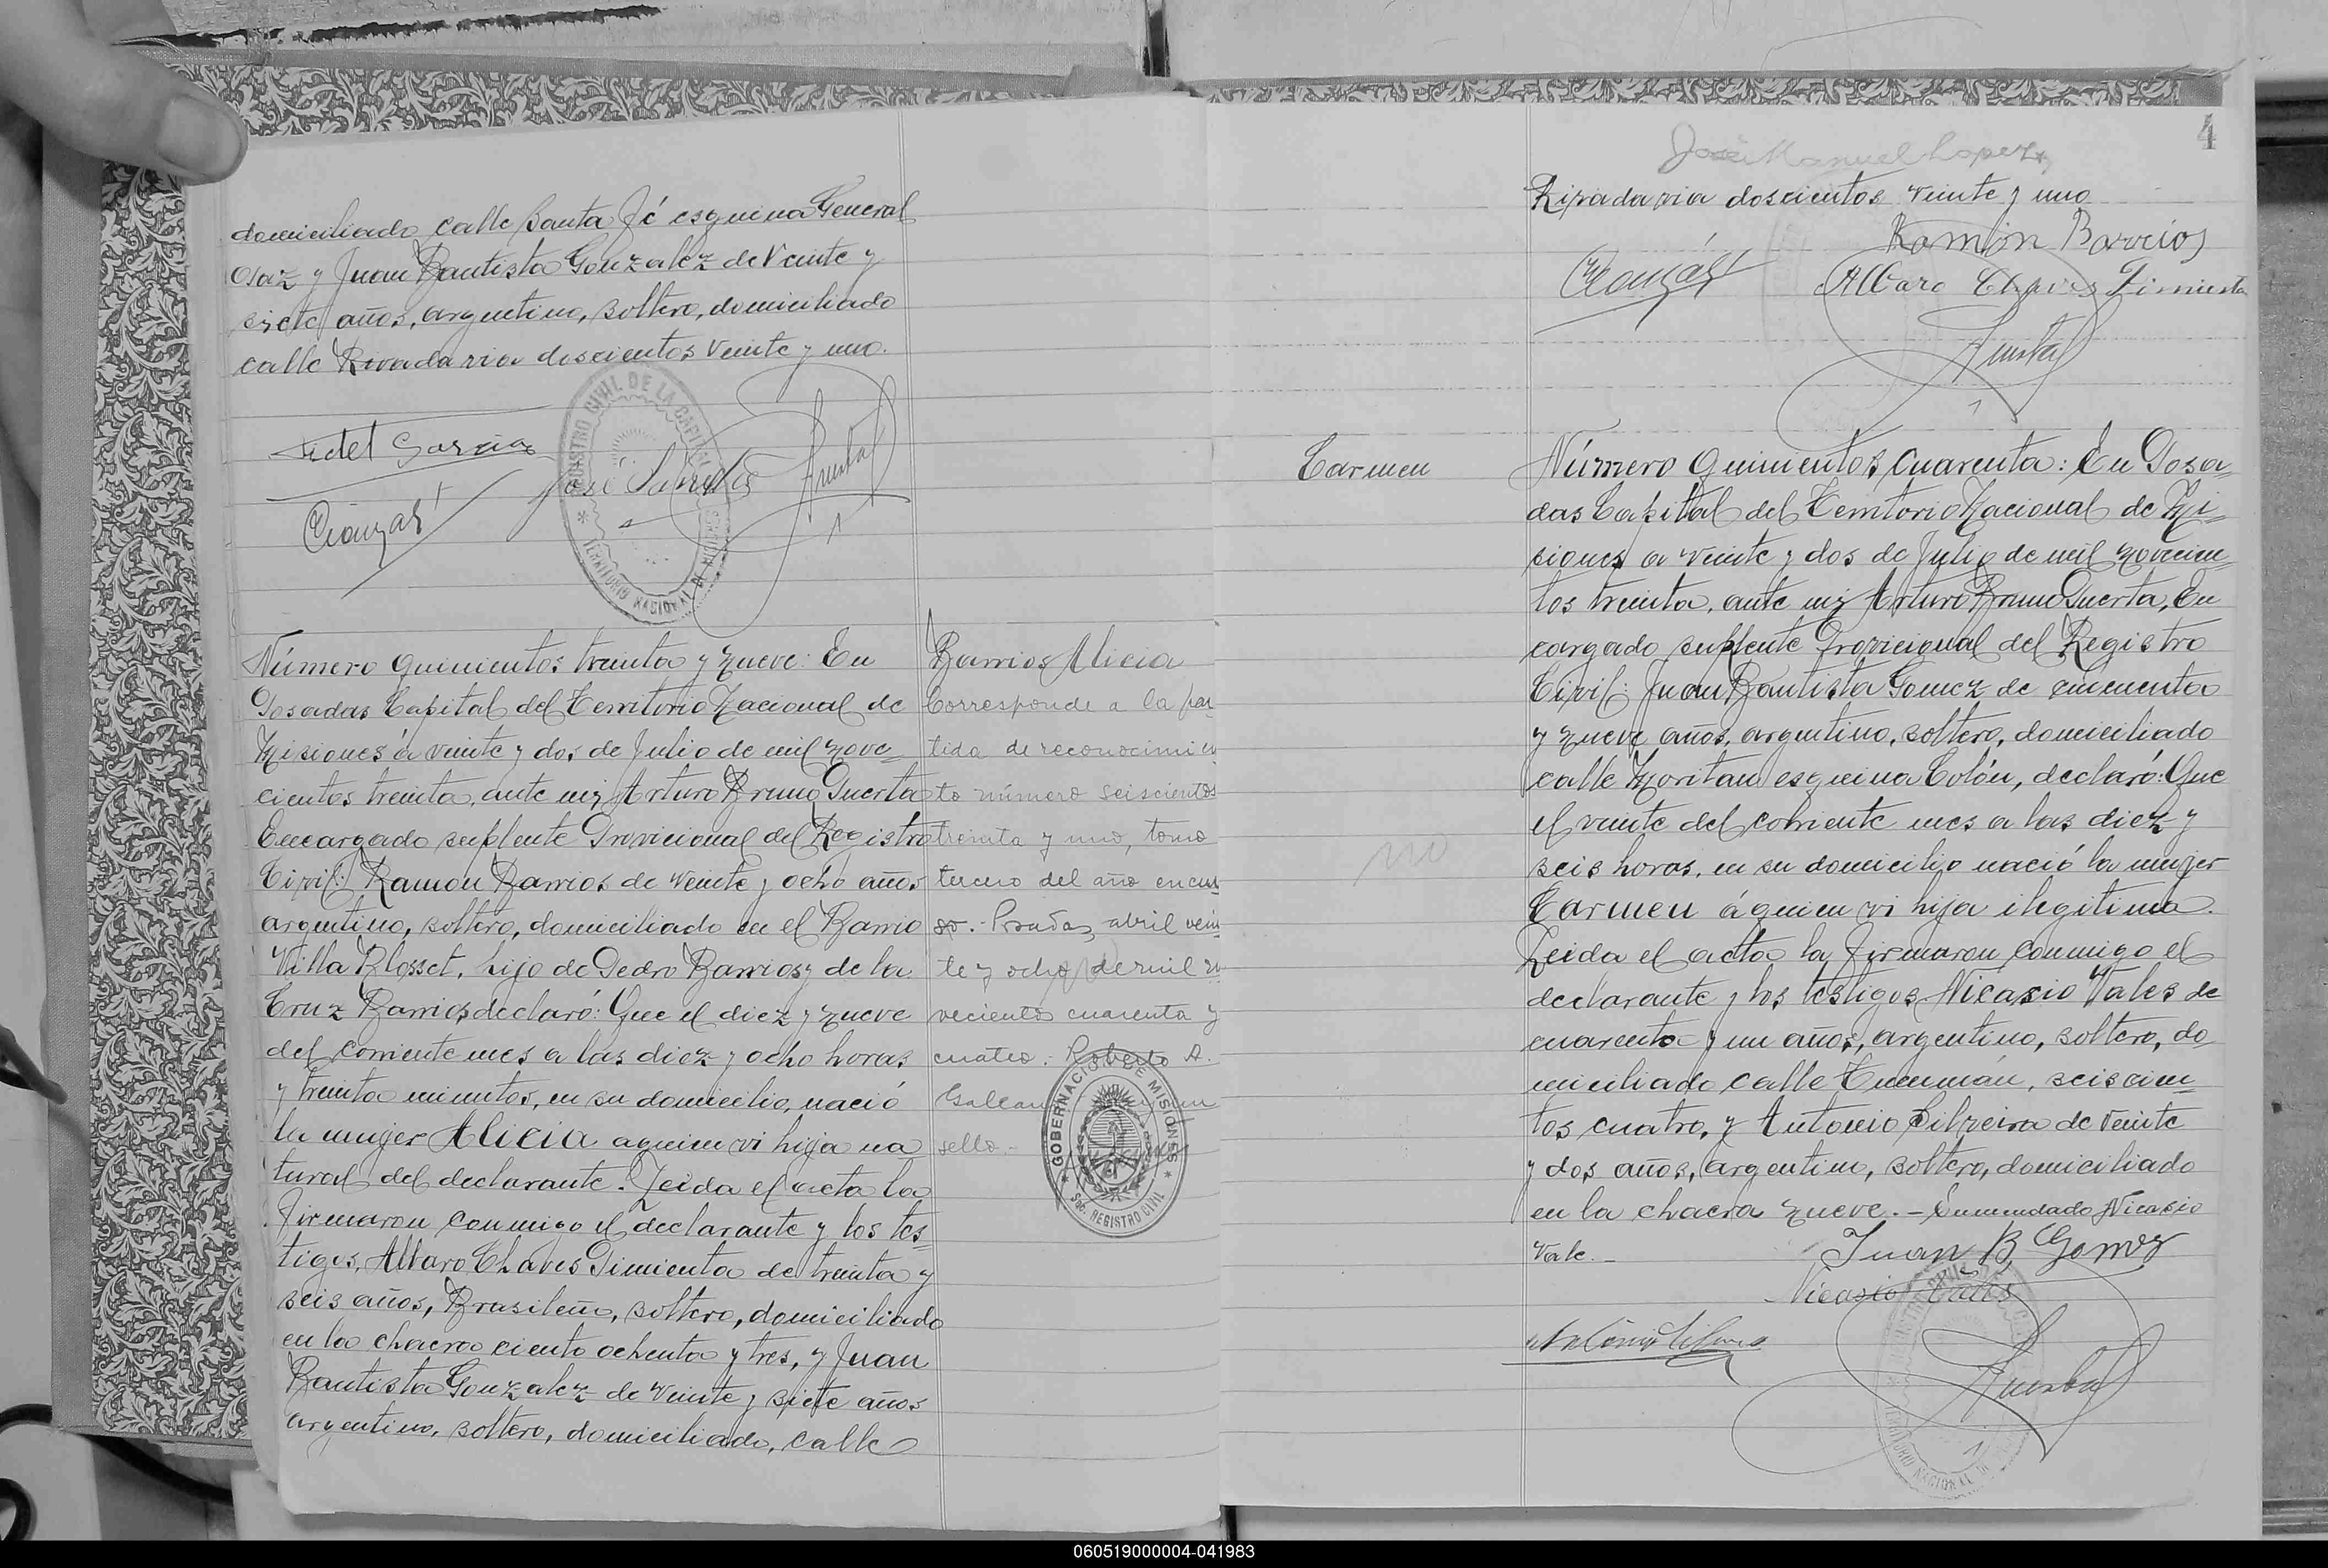 domiciliado calle Santa Fé esquina General
Paz y Juan Bautista Gonzalez de Veinte y
siete años, argentino, soltero, domiciliado
calle Rivadavia doscientos veinte y uno.
Fidel Garcia
REGISTRO CIVIL DE LA CAPITAL
TERRITORIO NACIONAL DE MISIONES
Número quinientos treinta y nueve: En
Posadas Capital del Territorio Nacional de
Misiones á veinte y dos de Julio de mil nove-
cientos treinta, ante mi Arturo Bruno Puerta
Encargado suplente Provicional del Registro
Civil: Ramón Barrios de veinte y ocho años
argentino, soltero, domiciliado en el Barrio
Villa Blosset, hijo de Pedro Barrios y de la
Cruz Barrios declaró: Que el diez y nueve
del corriente mes a las diez y ocho horas
y treinta minutos, en su domicilio, nació
la mujer Alicia a quien vi hija na
tural del declarante. Leida el acta la
firmaron conmigo el declarante y los tes-
tigos, Alvaro Chaves Pimienta de treinta y
seis años, Brasileño, soltero, domiciliado
en la chacra ciento ochenta y tres, y Juan
Bautista Gonzalez de veinte y siete años
argentino, soltero, domiciliado, calle
Barrios Alicia
Corresponde a la par-
tida de reconocimien
to número seiscientos
treinta y uno, tomo
tercero del año en cur
so.- Posadas, abril vein
te y ocho de mil no
vecientos cuarenta y
cuatro.- Roberto A.
sello.-
GOBERNACION DE MISIONES
REGISTRO CIVIL
4
José Manuel Lopez
Rivadavia doscientos veinte y uno
Ramón Barrios
Alvaro Chaves Pimienta
Puerta
Carmen
Número Quinientos cuarenta: En Posa-
das Capital del Territorio Nacional de Mi-
siones a veinte y dos de Julio de mil novecien-
tos treinta, ante mi Arturo Bruno Puerta, En
cargado suplente Provicional del Registro
Civil: Juan Bautista Gomez de cincuenta
y nueve años, argentino, soltero, domiciliado
calle Moritan esquina Colón, declaró: Que
el veinte del corriente mes a las diez y
seis horas, en su domicilio nació la mujer
Carmen á quien vi hija ilegitima.
Leida el acta la firmaron conmigo el
declarante y los testigos Nicasio Vales de
cuarenta y un años, argentino, soltero, do-
miciliado calle Tucumán, seiscien-
tos cuatro, y Antonio Silveira de veinte
y dos años, argentino, soltero, domiciliado
en la chacra nueve.- Enmendado Nicasio
Vale.-
no
Juan B Gomez
Nicasio Vales
Antonio Silveira
Puerta
060519000004-041983